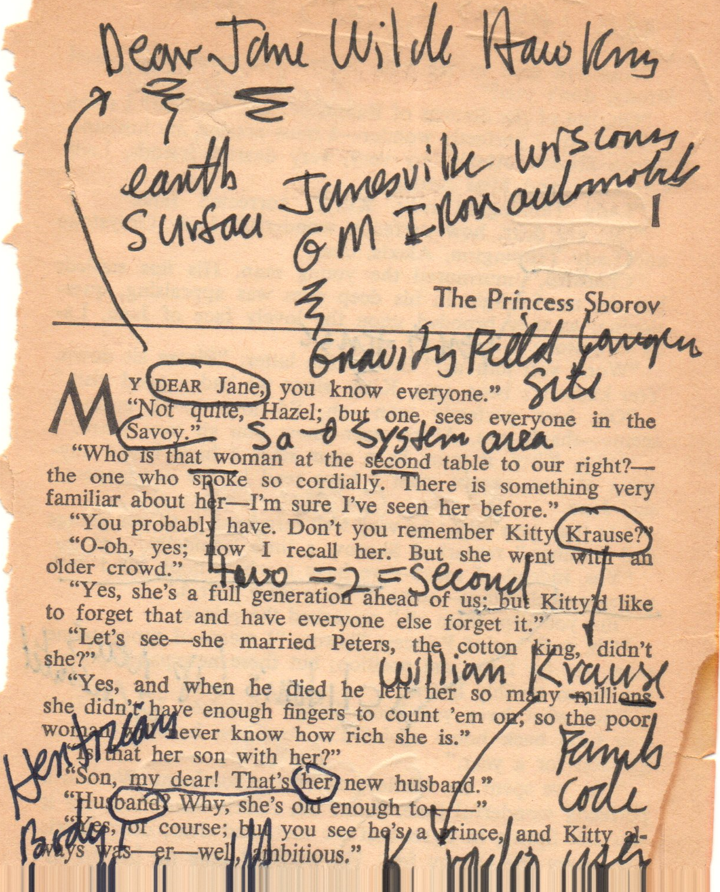 Dear Jane Wilde Hawking
earth
surface
Janesville wisconsin
GM Iron automobile
The Princess Sborov
Gravity Field
Site
MY DEAR Jane, you know everyone.”
“Not quite, Hazel; but one sees everyone in the
Savoy.”
Sa → System area
“Who is that woman at the second table to our right?—
the one who spoke so cordially. There is something very
familiar about her—I’m sure I’ve seen her before.”
“You probably have. Don’t you remember Kitty Krause?”
“O-oh, yes; now I recall her. But she went with an
older crowd.”
two = 2 = second
“Yes, she’s a full generation ahead of us; but Kitty’d like
to forget that and have everyone else forget it.”
“Let’s see—she married Peters, the cotton king, didn’t
she?”
William Krause
“Yes, and when he died he left her so many millions
she didn’t have enough fingers to count ’em on; so the poor
woman never know how rich she is.”
Family
Code
that her son with her?”
“Son, my dear! That’s her new husband.”
“Husband? Why, she’s old enough to——”
“Yes, of course; but you see he’s a prince, and Kitty al-
ways was—er—well, ambitious.”
K radio user